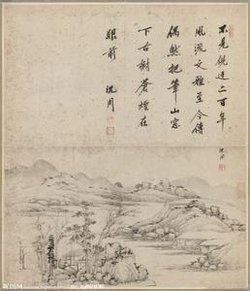 不見倪迂二百年
風流文雅至今傳
偶然把筆山窓
下古樹蒼煙在
眼前 沈周